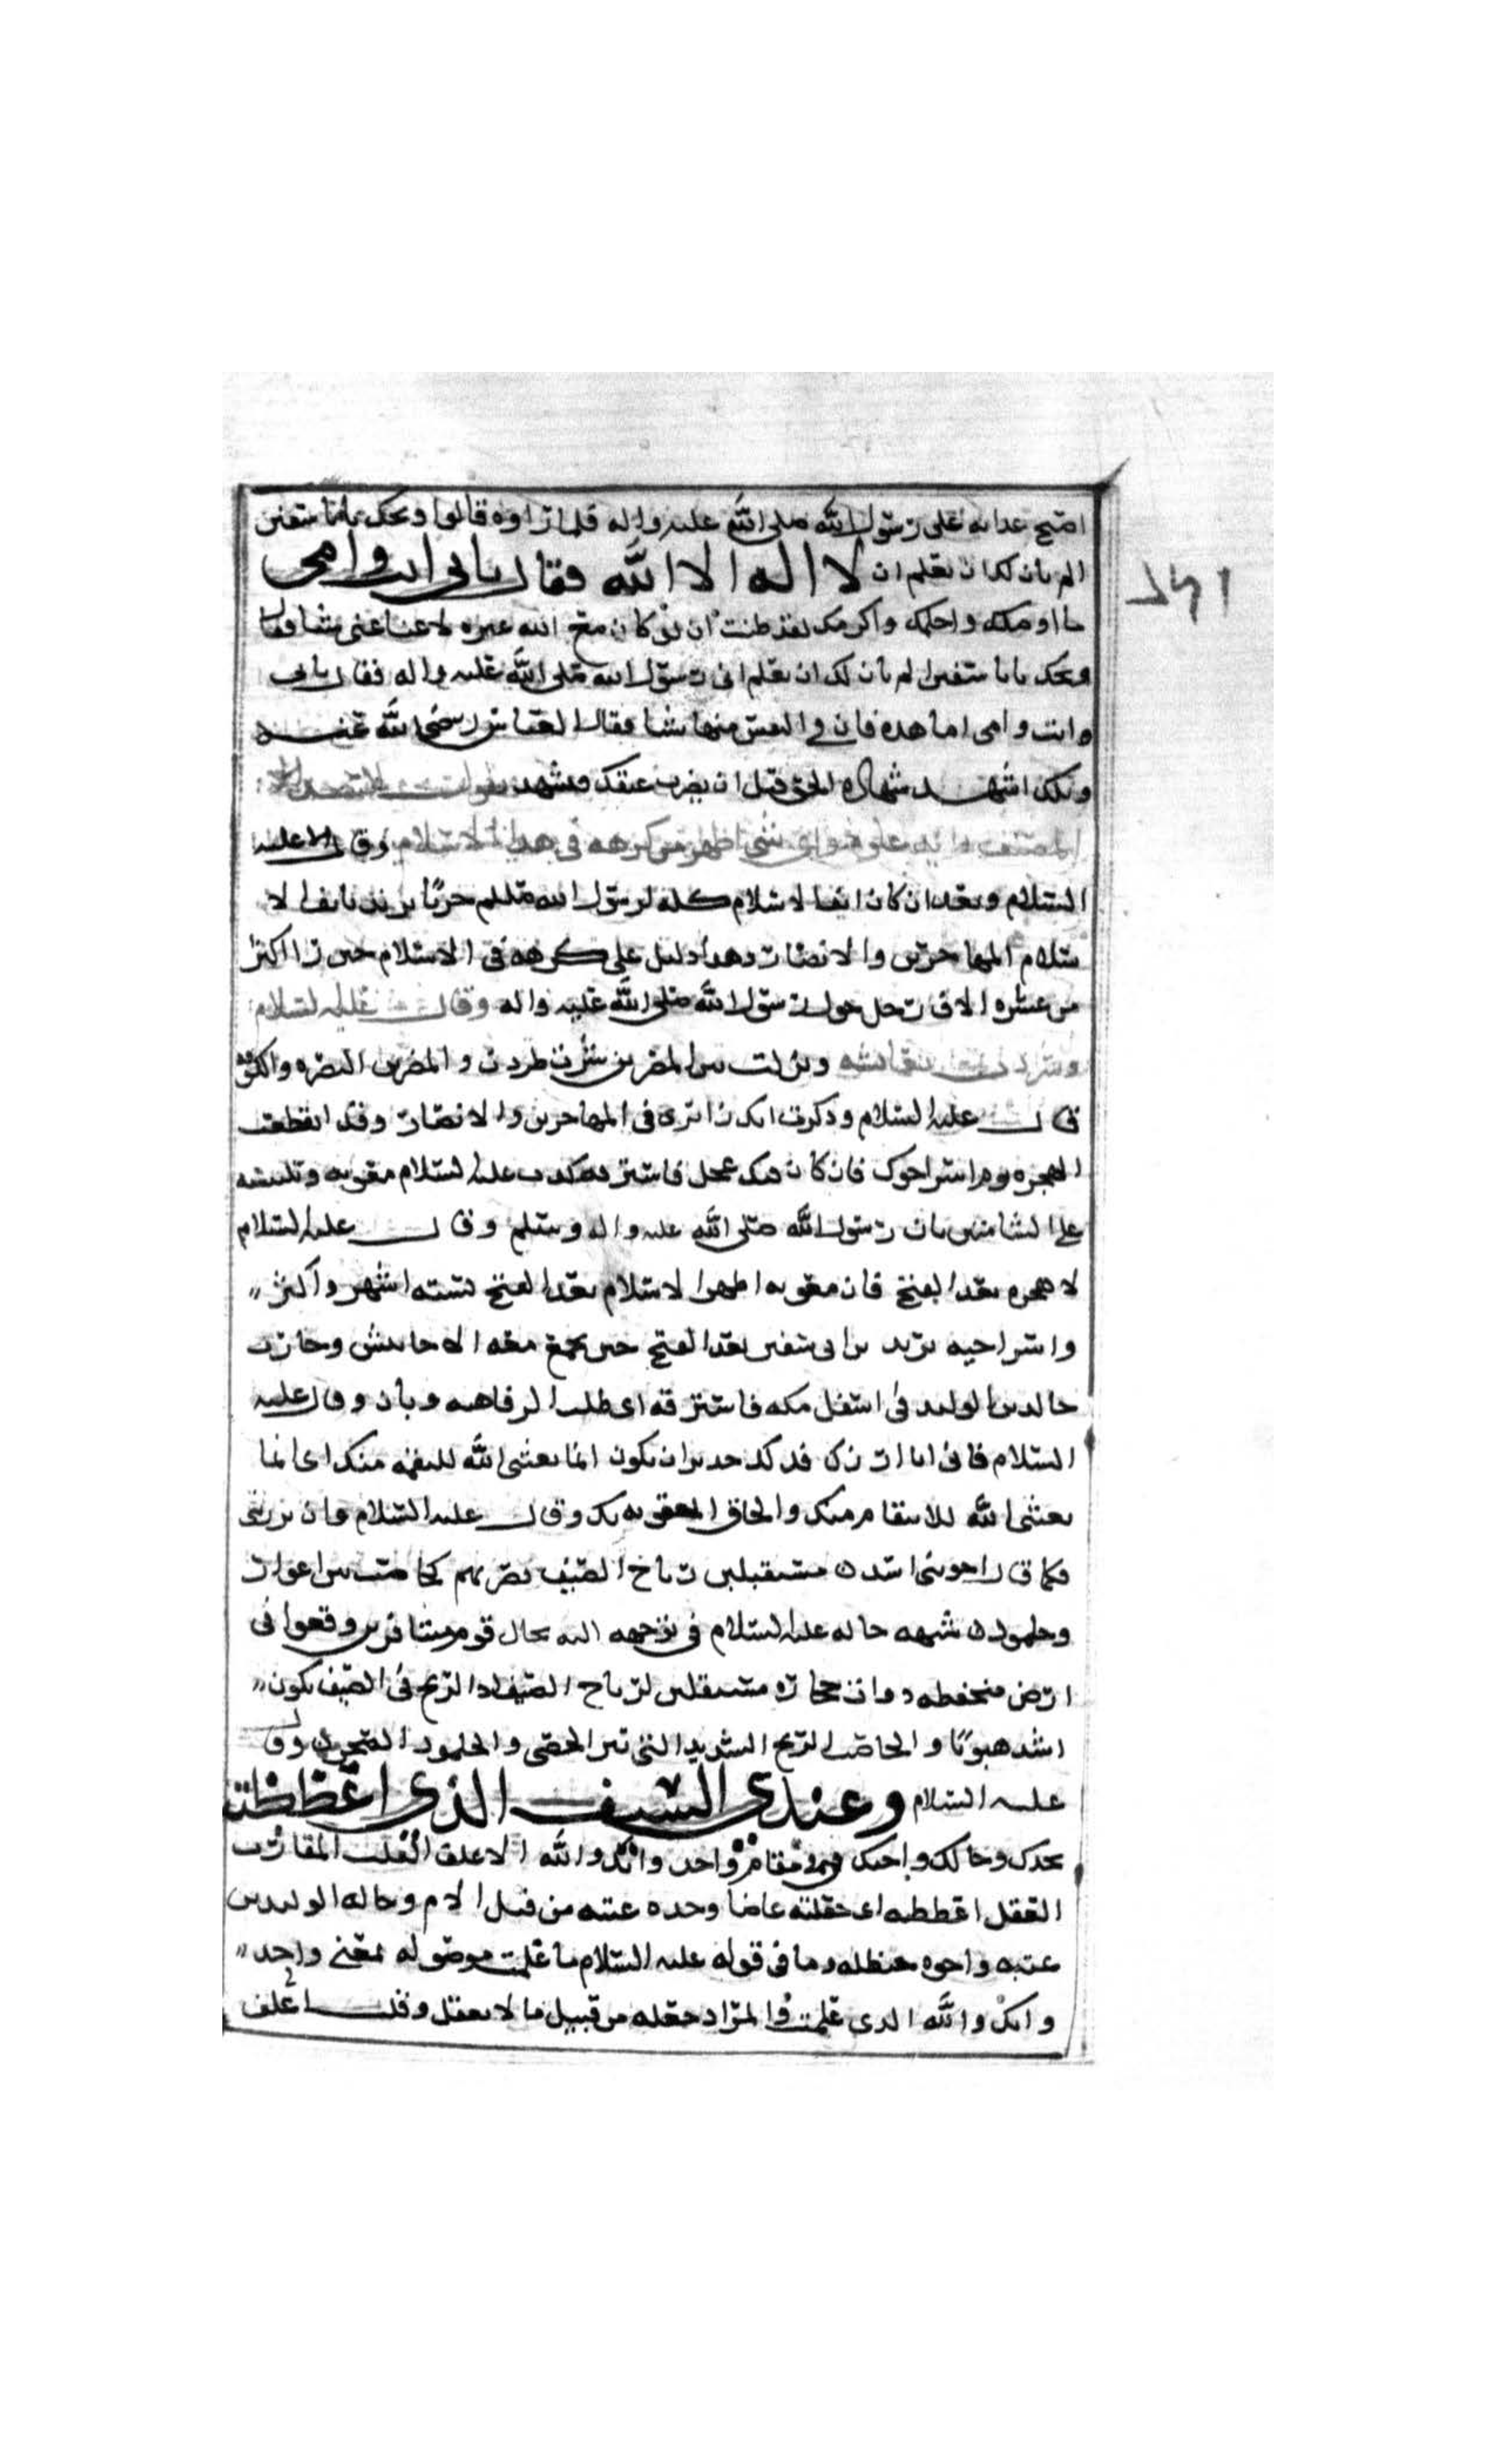 اصبح غدا به على رسول الله صلى الله عليه واله فلما راوه قالوا ويحك يا با سفين
الم يان لك ان تعلم ان لا اله الا الله فقال بابي انت وامي
ما اوصلك واحلمك واكرمك لقد ظننت ان لو كان مع الله غيره لاغنا عني شيا فقال
ويحك يا با سفين الم يان لك ان تعلم اني رسول الله صلى الله عليه واله فقال بابي
وانت وامي اما هذه فان في النفس منها شيا فقال العباس رضي الله عنه
ويلك اشهد شهاده الحق قبل ان يضرب عنقك فشهد
المصنف واي شي اظهر من كرهه في هذا الاسلام وقال عليه
السلام وبعد ان كان انف الاسلام كله لرسول الله صللم حربا يريد بانف الا
سلام المهاجرين والانصار وهذا دليل على كرهه في الاسلام حين راا اكثر
من عشره الاف رجل حول رسول الله صلى الله عليه واله وقال عليه السلام
ونزلت بين المصرين شرت طردت والمصرين البصره والكوفه
قال عليه السلام وذكرت انك زائري في المهاجرين والانصار وقد انقطعت
الهجره يوم اسر اخوك فان كان فيك عجل فاسترفه كذب عليه السلام معويه وتلبيسه
على الشاميين بان رسول الله صلى الله عليه واله وسلم وقال عليه السلام
لا هجره بعد الفتح فان معويه اظهر الاسلام بعد الفتح بسته اشهر واكثر
واسر اخيه يزيد بن ابي سفين بعد الفتح حين تجمع معه الاحابيش وحارب
خالد بن الوليد في اسفل مكه فاسترفه اي طلب الرفاهيه وبان وقال عليه
السلام فاني ان ازرك فذلك جدير ان يكون انما بعثني الله للنقمه منك اي انما
بعثني الله للانتقام منك والحاق العقوبه بك وقال عليه السلام وان تزرني
فكما قال اخو بني اسد ن مستقبلين رياح الصيف تضربهم بحاصب بين اغوار
وجلمود ن شبهه حاله عليه السلام في توجهه اليه بحال قوم مسافرين وقعوا في
ارض منخفظه ذوات حجاره مستقبلين لرياح الصيف اذ الريح في الصيف يكون
اشد هبوبا والحاصب الريح الشديد التي تثير الحصى والجلمود الصخر وقال
عليه السلام وعندي السيف الذي اعظظته
بجدك وخالك واخيك في مقام واحد وانك والله الاغلف القلب المقارب
العقل اعظظته اي جعلته عاضا وجده عتبه من قبل الام وخاله الوليد بن
عتبه واخوه حنظله وما في قوله عليه السلام ما علمت موصوله بمعنى واحد
وانك والله الذي علمت والمراد جعله من قبيل ما لا يعقل وقلب اغلف